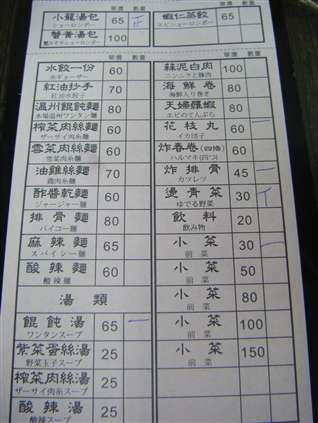 單價 數量
單價 數量
小龍湯包 65 丅
ショーロンポー
蝦仁蒸餃 65
エビショーロンポー
蟹黃湯包 100
單價 數量
單價 數量
水餃一份 60
水ギョーザー
蒜泥白肉 100
ニンニクと豚肉
紅油抄手 70
紅油水餃
海鮮卷 80
海鮮入り巻き
溫州餛飩麵 80
本場温州ワンタン麺
天婦羅蝦 80
エビのてんぷら
榨菜肉絲麵 60
ザーサイ肉糸麺
花枝丸 60 一
イカ団子
雪菜肉絲麵 60
雪菜肉糸麺
炸春卷(四條) 60
ハルマキ(四つ)
油雞絲麵 60
鶏肉糸麺
炸排骨 45 一
カツレツ
酢醬乾麵 60
ジャージャー麺
燙青菜 30 丅
ゆでる野菜
排骨麵 80
パイコー麺
飲料 20
飲み物
麻辣麵 65
スパイシー麺
小菜 30 一
前菜
酸辣麵 60
酸辣麺
小菜 50
前菜
湯類
小菜 80
前菜
餛飩湯 65 一
ワンタンスープ
小菜 100
前菜
紫菜蛋絲湯 25
野菜玉子スープ
小菜 150
前菜
榨菜肉絲湯 25
ザーサイ肉糸スープ
酸辣湯 25
酸辣スープ